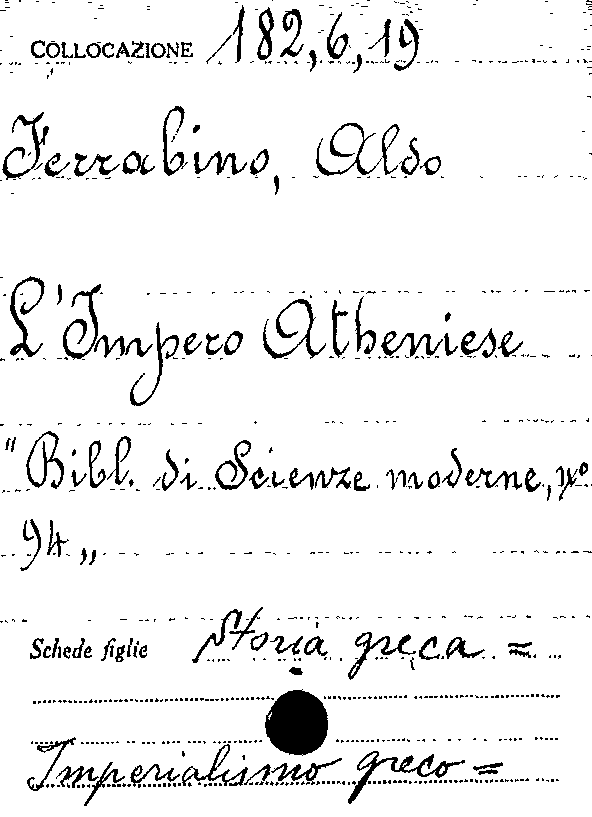 COLLOCAZIONE 182,6,19
Ferrabino, Aldo
L'Impero Atheniese
"Bibl. di Scienze moderne, nº
94„
Schede figlie Storia greca =
Imperialismo greco =